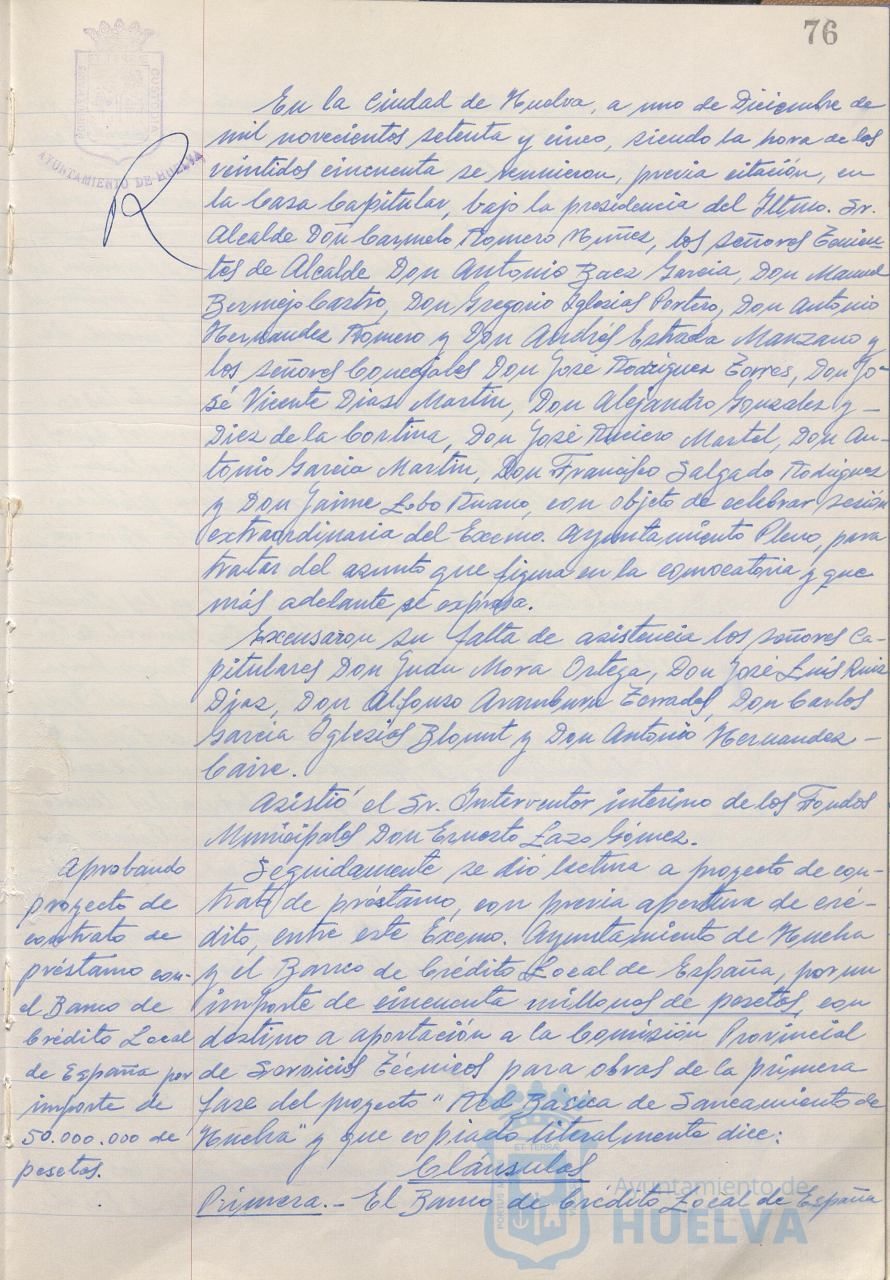 76
AYUNTAMIENTO DE HUELVA
En la Ciudad de Huelva, a uno de Diciembre de
mil novecientos setenta y cinco, siendo la hora de los
veintidos cincuenta se reunieron, previa citación, en
la Casa Capitular, bajo la presidencia del Iltmo. Sr.
Alcalde Don Carmelo Romero Núñez, los señores Tenien-
tes de Alcalde Don Antonio Baez Garcia, Don Manuel
Bermejo Castro, Don Gregorio Iglesias Portero, Don Antonio
Hernandez Romero y Don Andrés Estrada Manzano y
los señores Concejales Don José Rodriguez Torres, Don Jo-
sé Vicente Dias Martin, Don Alejandro Gonzalez y-
Diez de la Cortina, Don José Ruciero Martel, Don An-
tonio Garcia Martin, Don Francisco Salgado Rodriguez
y Don Jaime Lobo Ruano, con objeto de celebrar sesión
extraordinaria del Excmo. Ayuntamiento Pleno, para
tratar del asunto que figura en la convocatoria y que
más adelante se expresa.
Excusaron su falta de asistencia los señores Ca-
pitulares Don Juan Mora Ortega, Don José Luis Ruiz
Diaz, Don Alfonso Aramburu Terrades, Don Carlos
Garcia Iglesias Blount y Don Antonio Hernandez-
Caire.
Asistió el Sr. Interventor interino de los Fondos
Municipales Don Ernesto Lazo Gómez.
Aprobando
proyecto de
contrato de
préstamo con-
el Banco de
Crédito Local
de España por
importe de
50.000.000 de
pesetas.
Seguidamente se dió lectura a proyecto de con-
trato de préstamo, con previa apertura de cré-
dito, entre este Excmo. Ayuntamiento de Huelva
y el Banco de Crédito Local de España, por un
importe de cincuenta millones de pesetas, con
destino a aportación a la Comisión Provincial
de Servicios Técnicos para obras de la primera
fase del proyecto "Red Basica de Saneamiento de
Huelva" y que copiado literalmente dice:
Cláusulas
Primera.- El Banco de Crédito Local de España
Ayuntamiento de
HUELVA